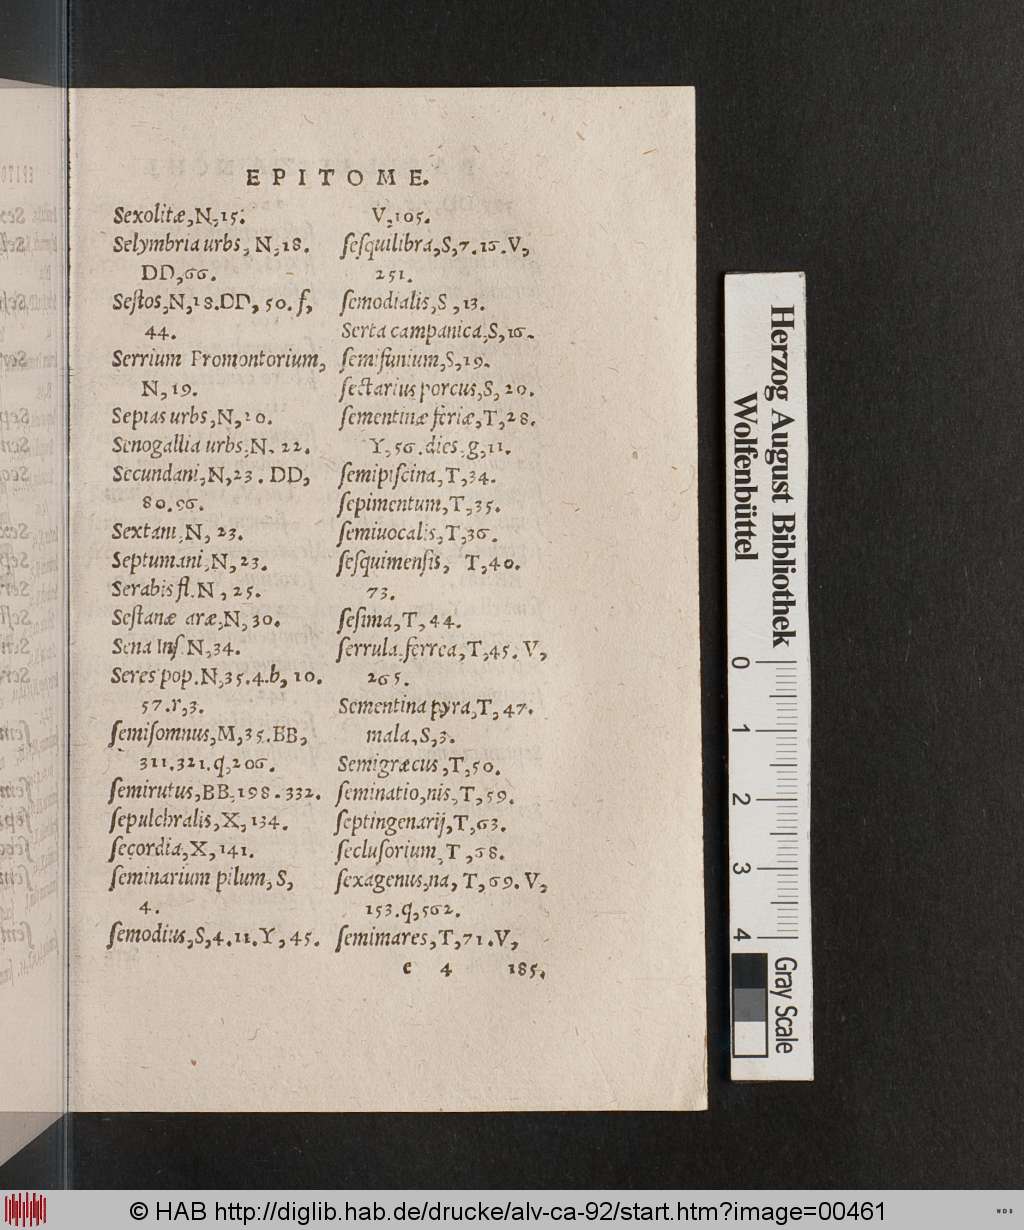 EPITOME.
Sexolitæ, N, 15.
Selymbria urbs, N, 18.
DD, 66.
Seſtos, N, 18. DD, 50. f,
44.
Serrium Promontorium,
N, 19.
Sepias urbs, N, 20.
Senogallia urbs, N. 22.
Secundani, N, 23. DD,
80. 96.
Sextani, N, 23.
Septumani, N, 23.
Serabis fl. N, 25.
Seſtanæ aræ, N, 30.
Sena Inſ. N, 34.
Seres pop. N, 35. 4. b, 10.
57. r, 3.
ſemiſomnus, M, 35. BB,
311. 321. q, 206.
ſemirutus, BB, 198. 332.
ſepulchralis, X, 134.
ſecordia, X, 141.
ſeminarium pilum, S,
4.
ſemodius, S, 4. 11. Y, 45.
V, 105.
ſeſquilibra, S, 7. 16. V,
251.
ſemodialis, S, 13.
Serta campanica, S, 16.
ſemifunium, S, 19.
ſectarius porcus, S, 20.
ſementinæ feriæ, T, 28.
Y, 56. dies. g, 11.
ſemipiſcina, T, 34.
ſepimentum, T, 35.
ſemiuocalis, T, 36.
ſeſquimenſis, T, 40.
73.
ſeſima, T, 44.
ſerrula ferrea, T, 45. V,
265.
Sementina pyra, T, 47.
mala, S, 3.
Semigræcus, T, 50.
ſeminatio, nis, T, 59.
ſeptingenarij, T, 63.
ſecluſorium, T, 68.
ſexagenus, na, T, 69. V,
153. q, 562.
ſemimares, T, 71. V,
e 4 185.
Herzog August Bibliothek
Wolfenbüttel
0 1 2 3 4
Gray Scale
© HAB http://diglib.hab.de/drucke/alv-ca-92/start.htm?image=00461